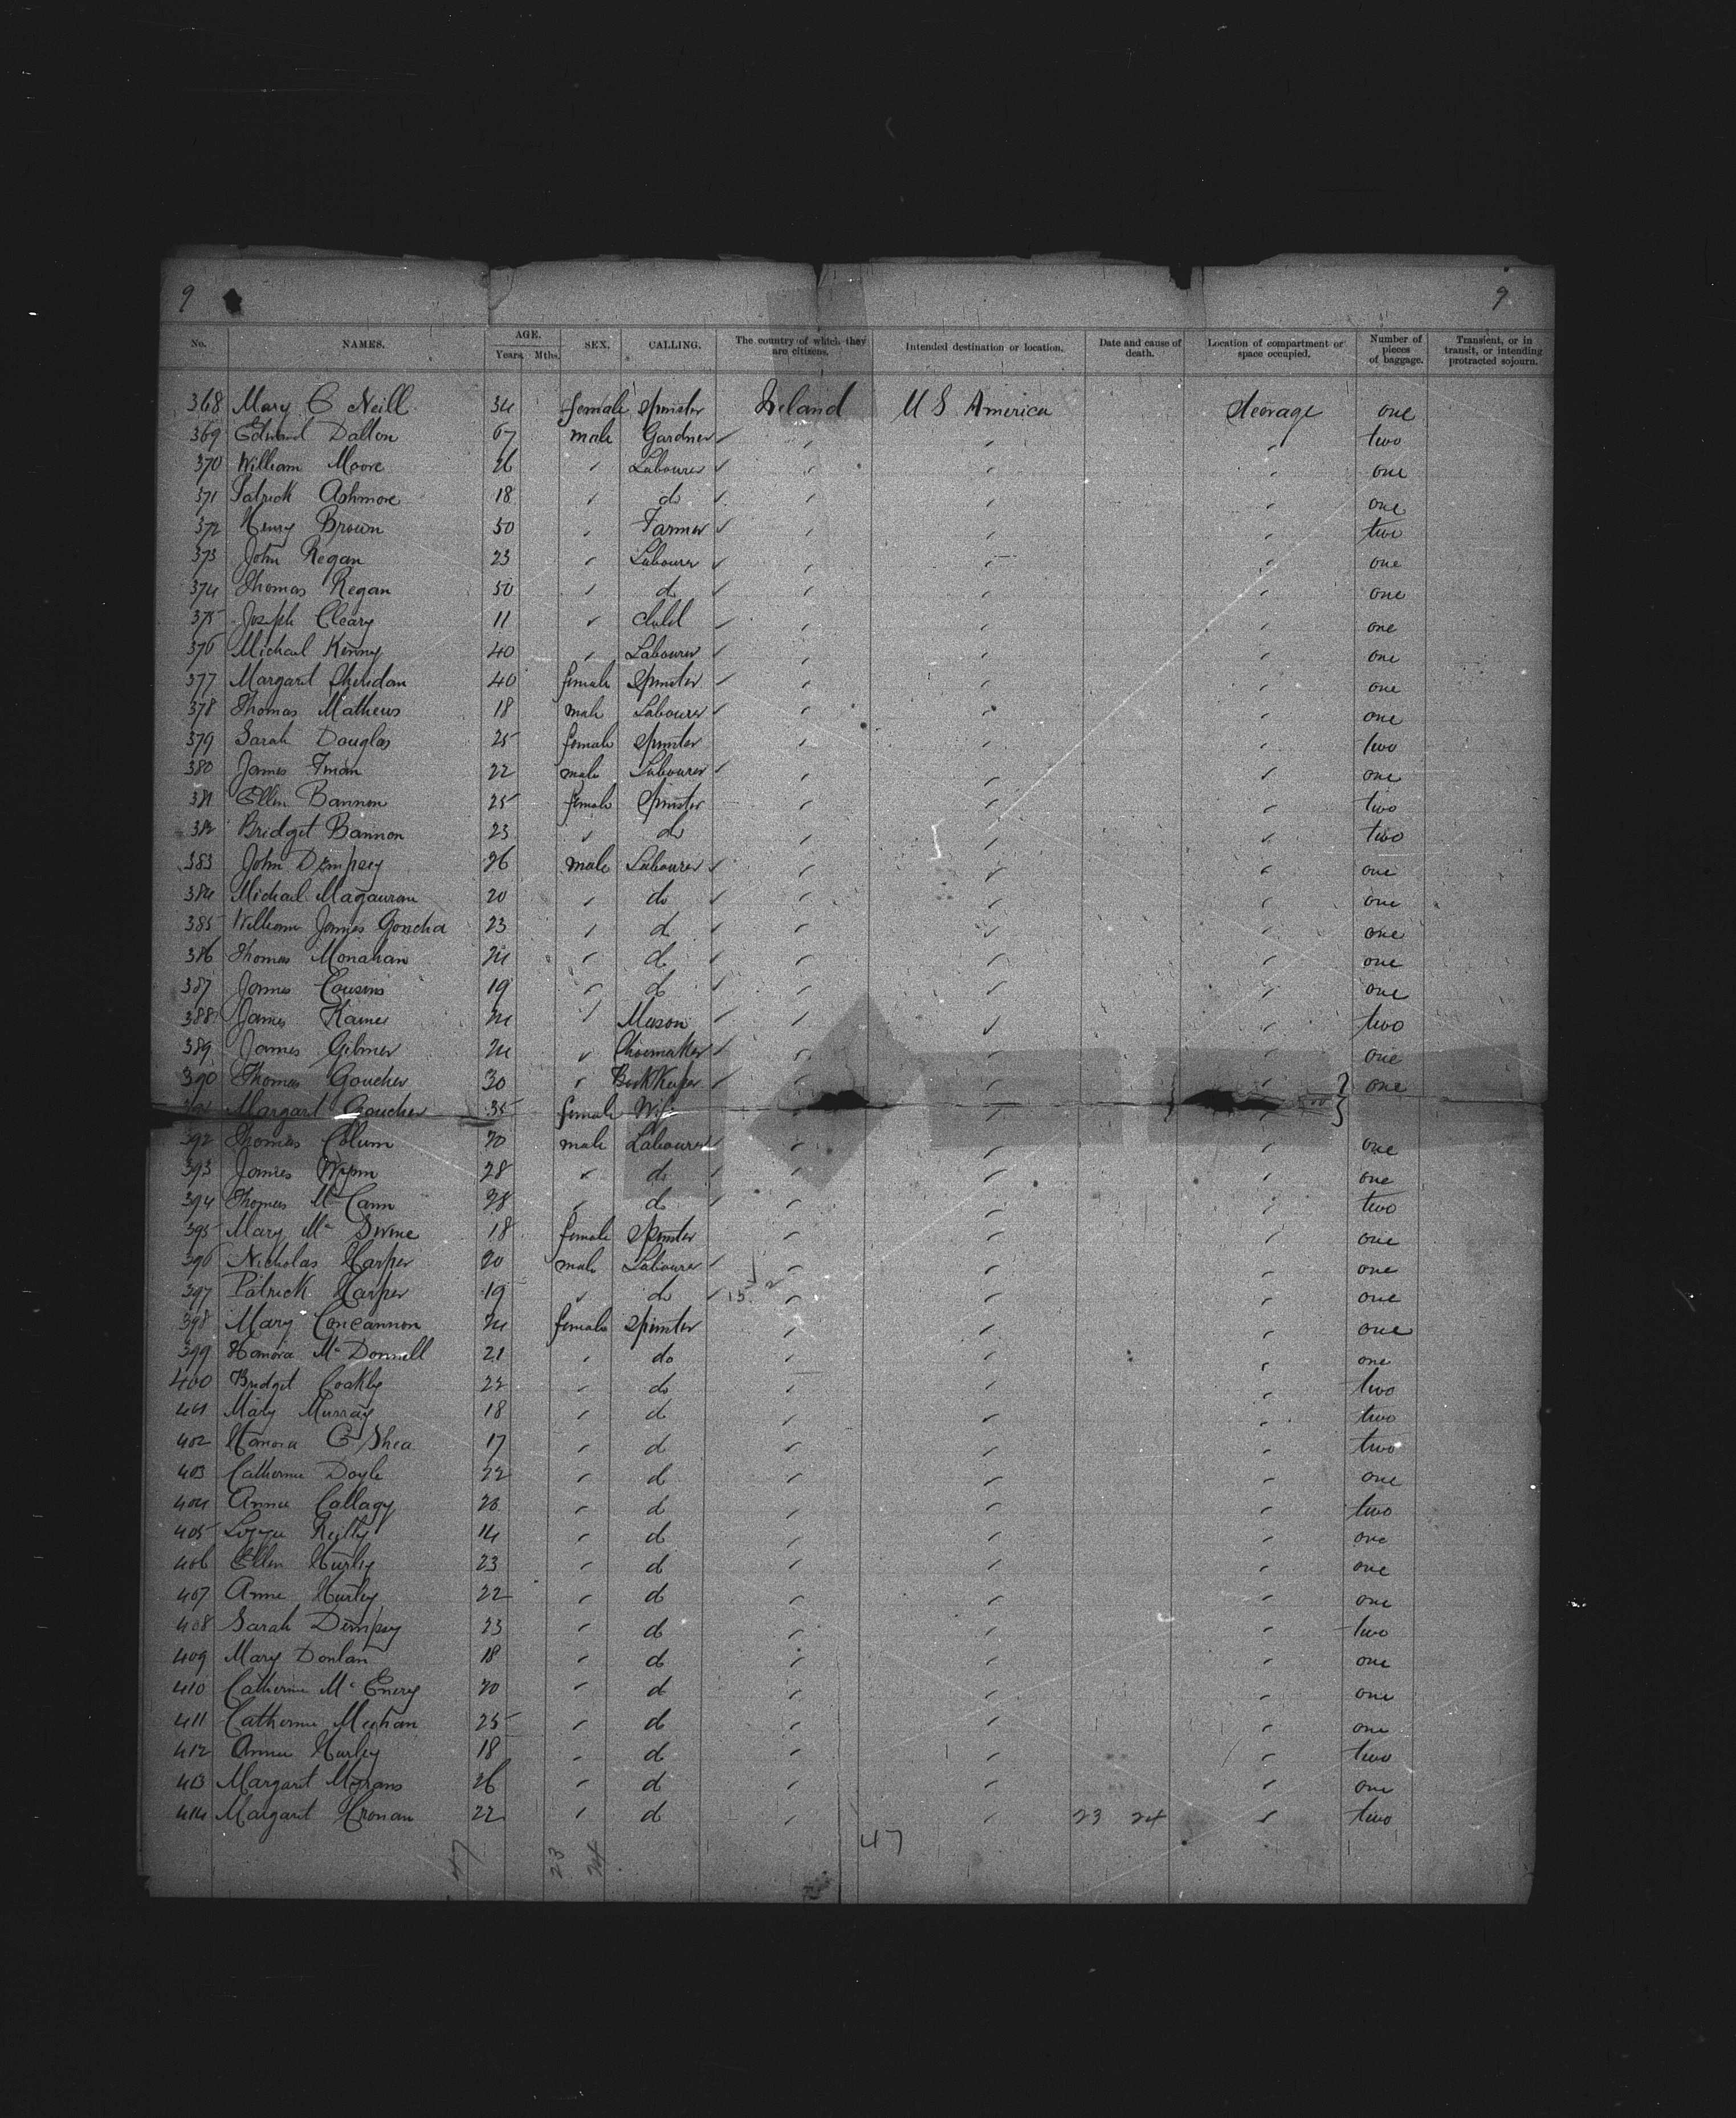 9 9
No. NAMES. AGE. Years Mths. SEX. CALLING. The country of which they are citizens. Intended destination or location. Date and cause of death. Location of compartment or space occupied. Number of pieces of baggage. Transient, or in transit, or intending protracted sojourn.
368 Mary O Neill 34 female Spinster Ireland U S America Steerage one
369 Edward Dalton 67 male Gardner two
370 William Moore 26 Labourer one
371 Patrick Ashmore 18 do one
372 Henry Brown 50 Farmer two
373 John Regan 23 Labourer one
374 Thomas Regan 50 do one
375 Joseph Cleary 11 child one
376 Michael Kenny 40 Labourer one
377 Margaret Sheridan 40 female Spinster one
378 Thomas Mathews 18 male Labourer one
379 Sarah Douglas 25 female Spinster two
380 James 22 male Labourer one
381 Ellen Bannon 25 female Spinster two
382 Bridget Bannon 23 do two
383 John Dempsey 26 male Labourer one
384 Michael Magauran 20 do one
385 William James 23 do one
386 Thomas Monahan 24 do one
387 James Cousins 19 do one
388 James 24 Mason two
389 James Gilmer 24 Shoemaker one
390 Thomas Goucher 30 BookKeeper one
Margaret Goucher 35 female Wife
392 Thomas Colum 20 male Labourer one
393 James Wynn 28 do one
394 Thomas McCann 28 do two
395 Mary Mc Swine 18 female Spinster one
396 Nicholas Harper 20 male Labourer one
397 Patrick Harper 19 do 15 one
398 Mary Concannon 24 female Spinster one
399 Hanora McDonnell 21 do one
400 Bridget Coakly 22 do two
401 Mary Murray 18 do two
402 Hanora O Shea 17 do two
403 Catherine Doyle 22 do one
404 Annie Callagy 20 do two
405 Lizzie Reilly 14 do one
406 Ellen Hurley 23 do one
407 Anne Hurley 22 do one
408 Sarah Dempsey 23 do two
409 Mary Donlan 18 do one
410 Catherine McEnery 20 do one
411 Catherine Meehan 25 do one
412 Annie Hurley 18 do two
413 Margaret 26 do one
414 Margaret Cronan 22 do 23 24 two
47 23 24 47